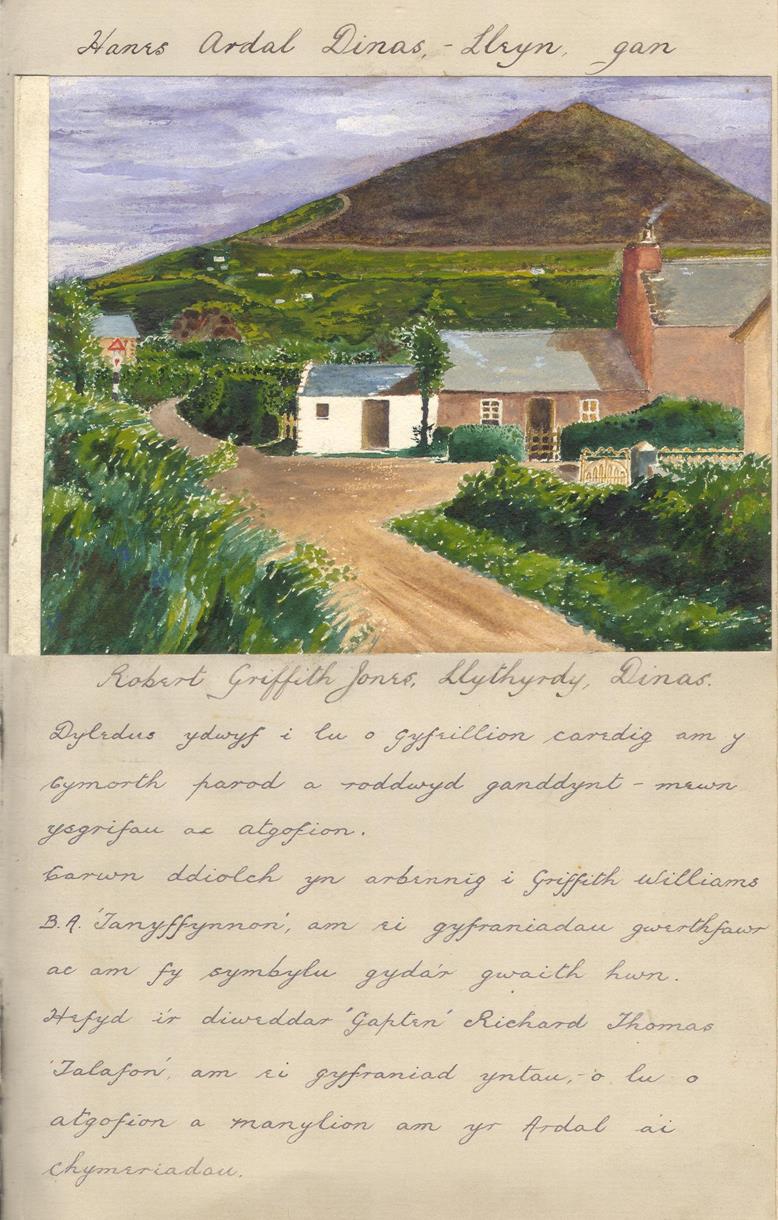 Hanes Ardal Dinas, - Lleyn, gan
Robert Griffith Jones, Llythyrdy, Dinas.
Dyledus ydwyf i lu o gyfeillion caredig am y
Cymorth parod a roddwyd ganddynt - mewn
ysgrifau ac atgofion.
Carwn ddiolch yn arbennig i Griffith Williams
B.A. 'Tanyffynnon', am ei gyfraniadau gwerthfawr
ac am fy symbylu gyda'r gwaith hwn.
Hefyd i'r diweddar 'Gapten' Richard Thomas
'Talafon', am ei gyfraniad yntau, - o lu o
atgofion a manylion am yr Ardal a'i
chymeriadau.